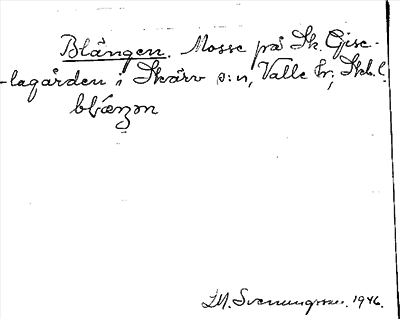 Blängen. Mosse på Sk. Gise-
-lagården i Skärv s:n, Valle hr; Skb. l.
blæŋən
I.M. Svenungsson. 1946.